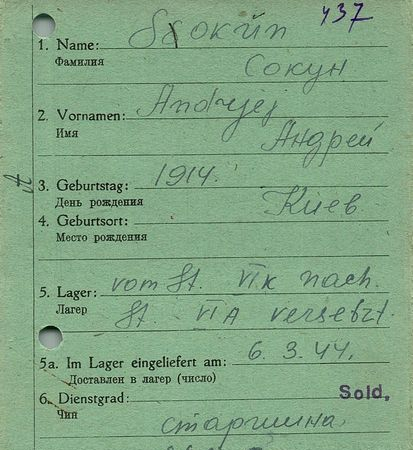 437
1. Name: Sokün
Фамилия
Сокун
2. Vornamen: Andrjej
Имя
Андрей
3. Geburtstag: 1914.
День рождения
Киев
4. Geburtsort:
Место рождения
5. Lager: vom St. VI K nach
Лагерь
St. VI A versetzt.
5a. Im Lager eingeliefert am: 6. 3. 44.
Доставлен в лагер (число)
6. Dienstgrad: Sold.
Чин
старшина